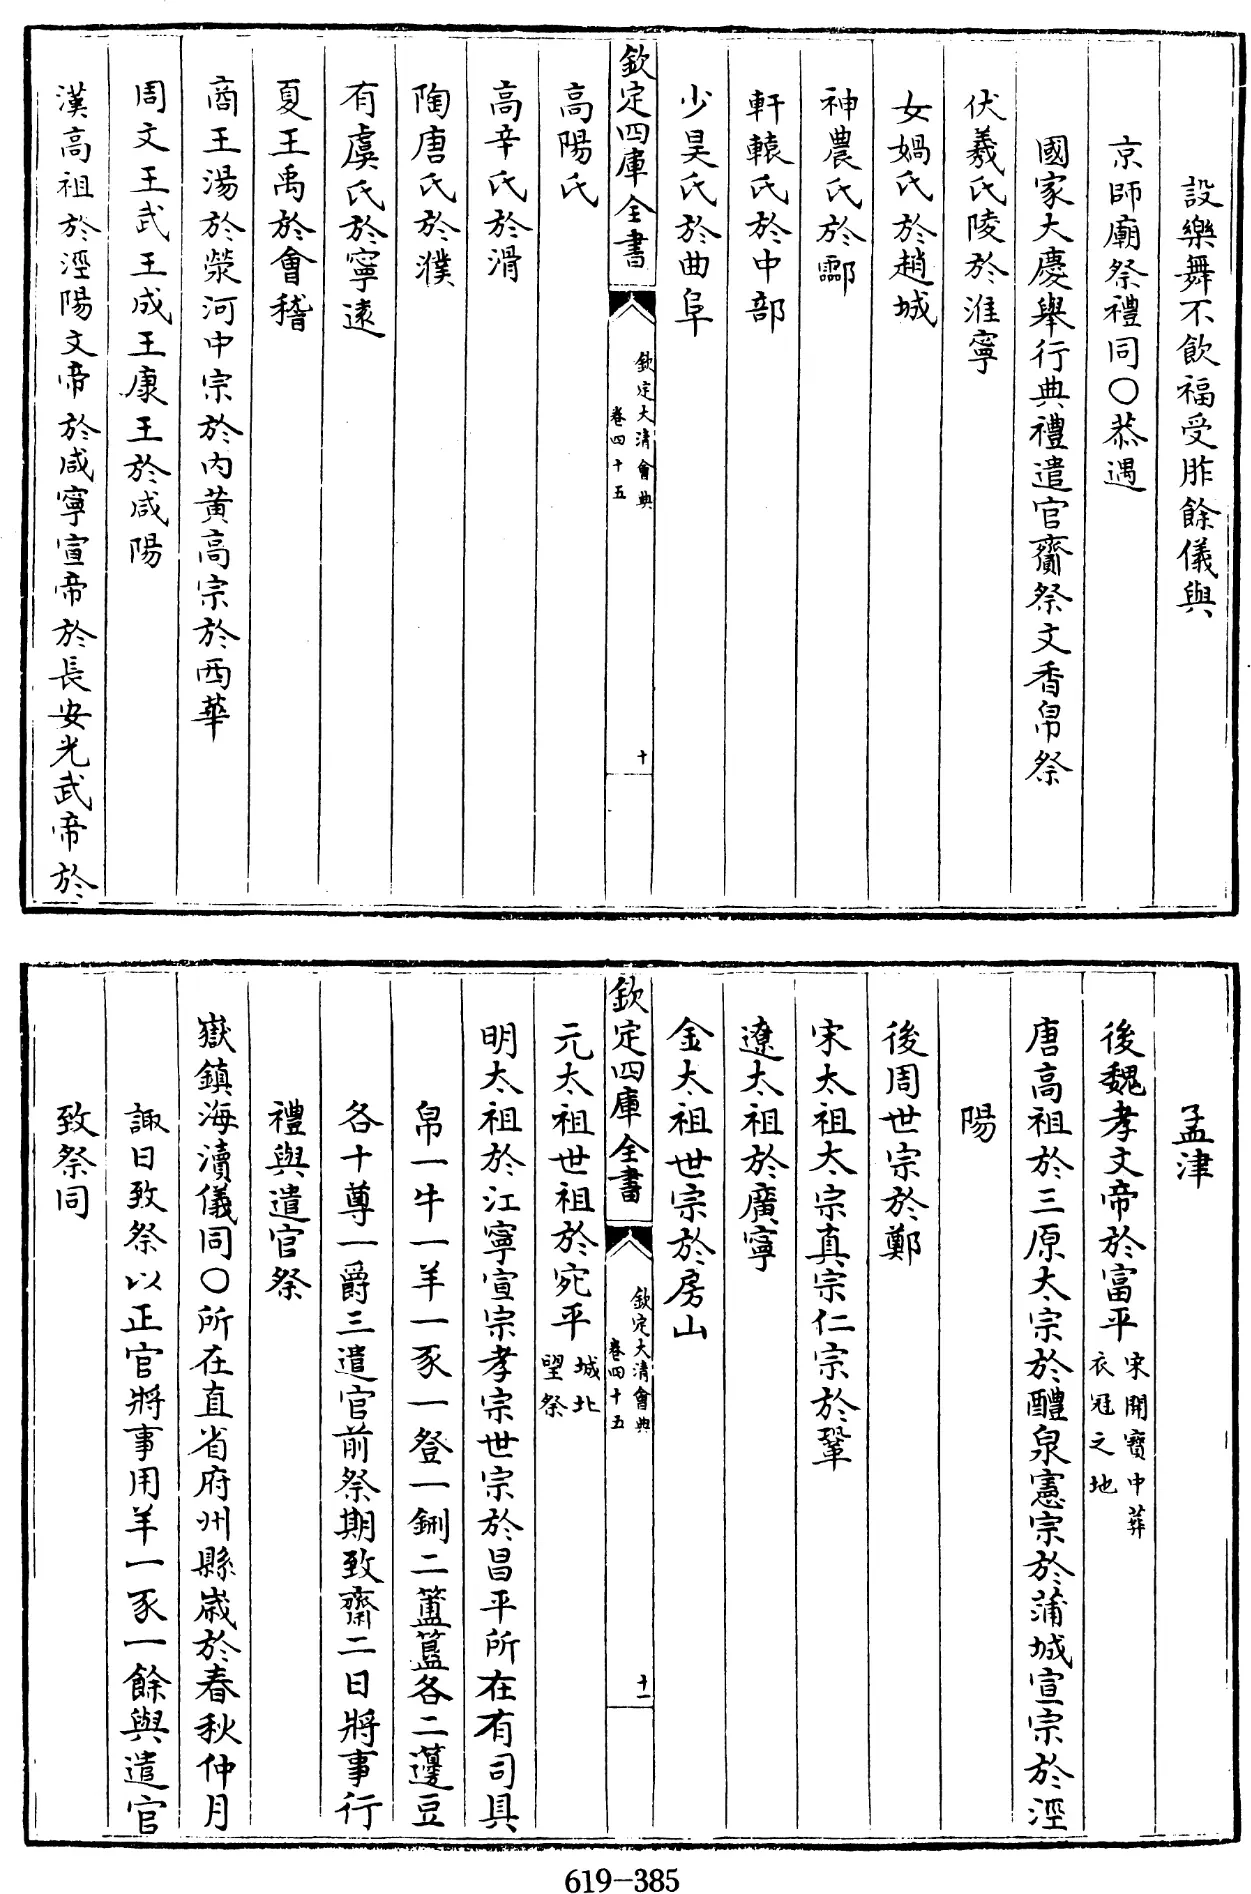 設樂舞不飲福受胙餘儀與
京師廟祭禮同○恭遇
國家大慶舉行典禮遣官齎祭文香帛祭
伏羲氏陵於淮寧
女媧氏於趙城
神農氏於酃
軒轅氏於中部
少昊氏於曲阜
欽定四庫全書
欽定大清會典
卷四十五
十
高陽氏
高辛氏於滑
陶唐氏於濮
有虞氏於寧遠
夏王禹於會稽
商王湯於滎河中宗於內黃高宗於西華
周文王武王成王康王於咸陽
漢高祖於涇陽文帝於咸寧宣帝於長安光武帝於
孟津
後魏孝文帝於富平宋開寶中葬
衣冠之地
唐高祖於三原太宗於醴泉憲宗於蒲城宣宗於涇
陽
後周世宗於鄭
宋太祖太宗真宗仁宗於鞏
遼太祖於廣寧
金太祖世宗於房山
欽定四庫全書
欽定大清會典
卷四十五
十一
元太祖世祖於宛平城北
望祭
明太祖於江寧宣宗孝宗世宗於昌平所在有司具
帛一牛一羊一豕一登一鉶二簠簋各二籩豆
各十尊一爵三遣官前祭期致齋二日將事行
禮與遣官祭
嶽鎮海瀆儀同○所在直省府州縣歲於春秋仲月
諏日致祭以正官將事用羊一豕一餘與遣官
致祭同
619-385